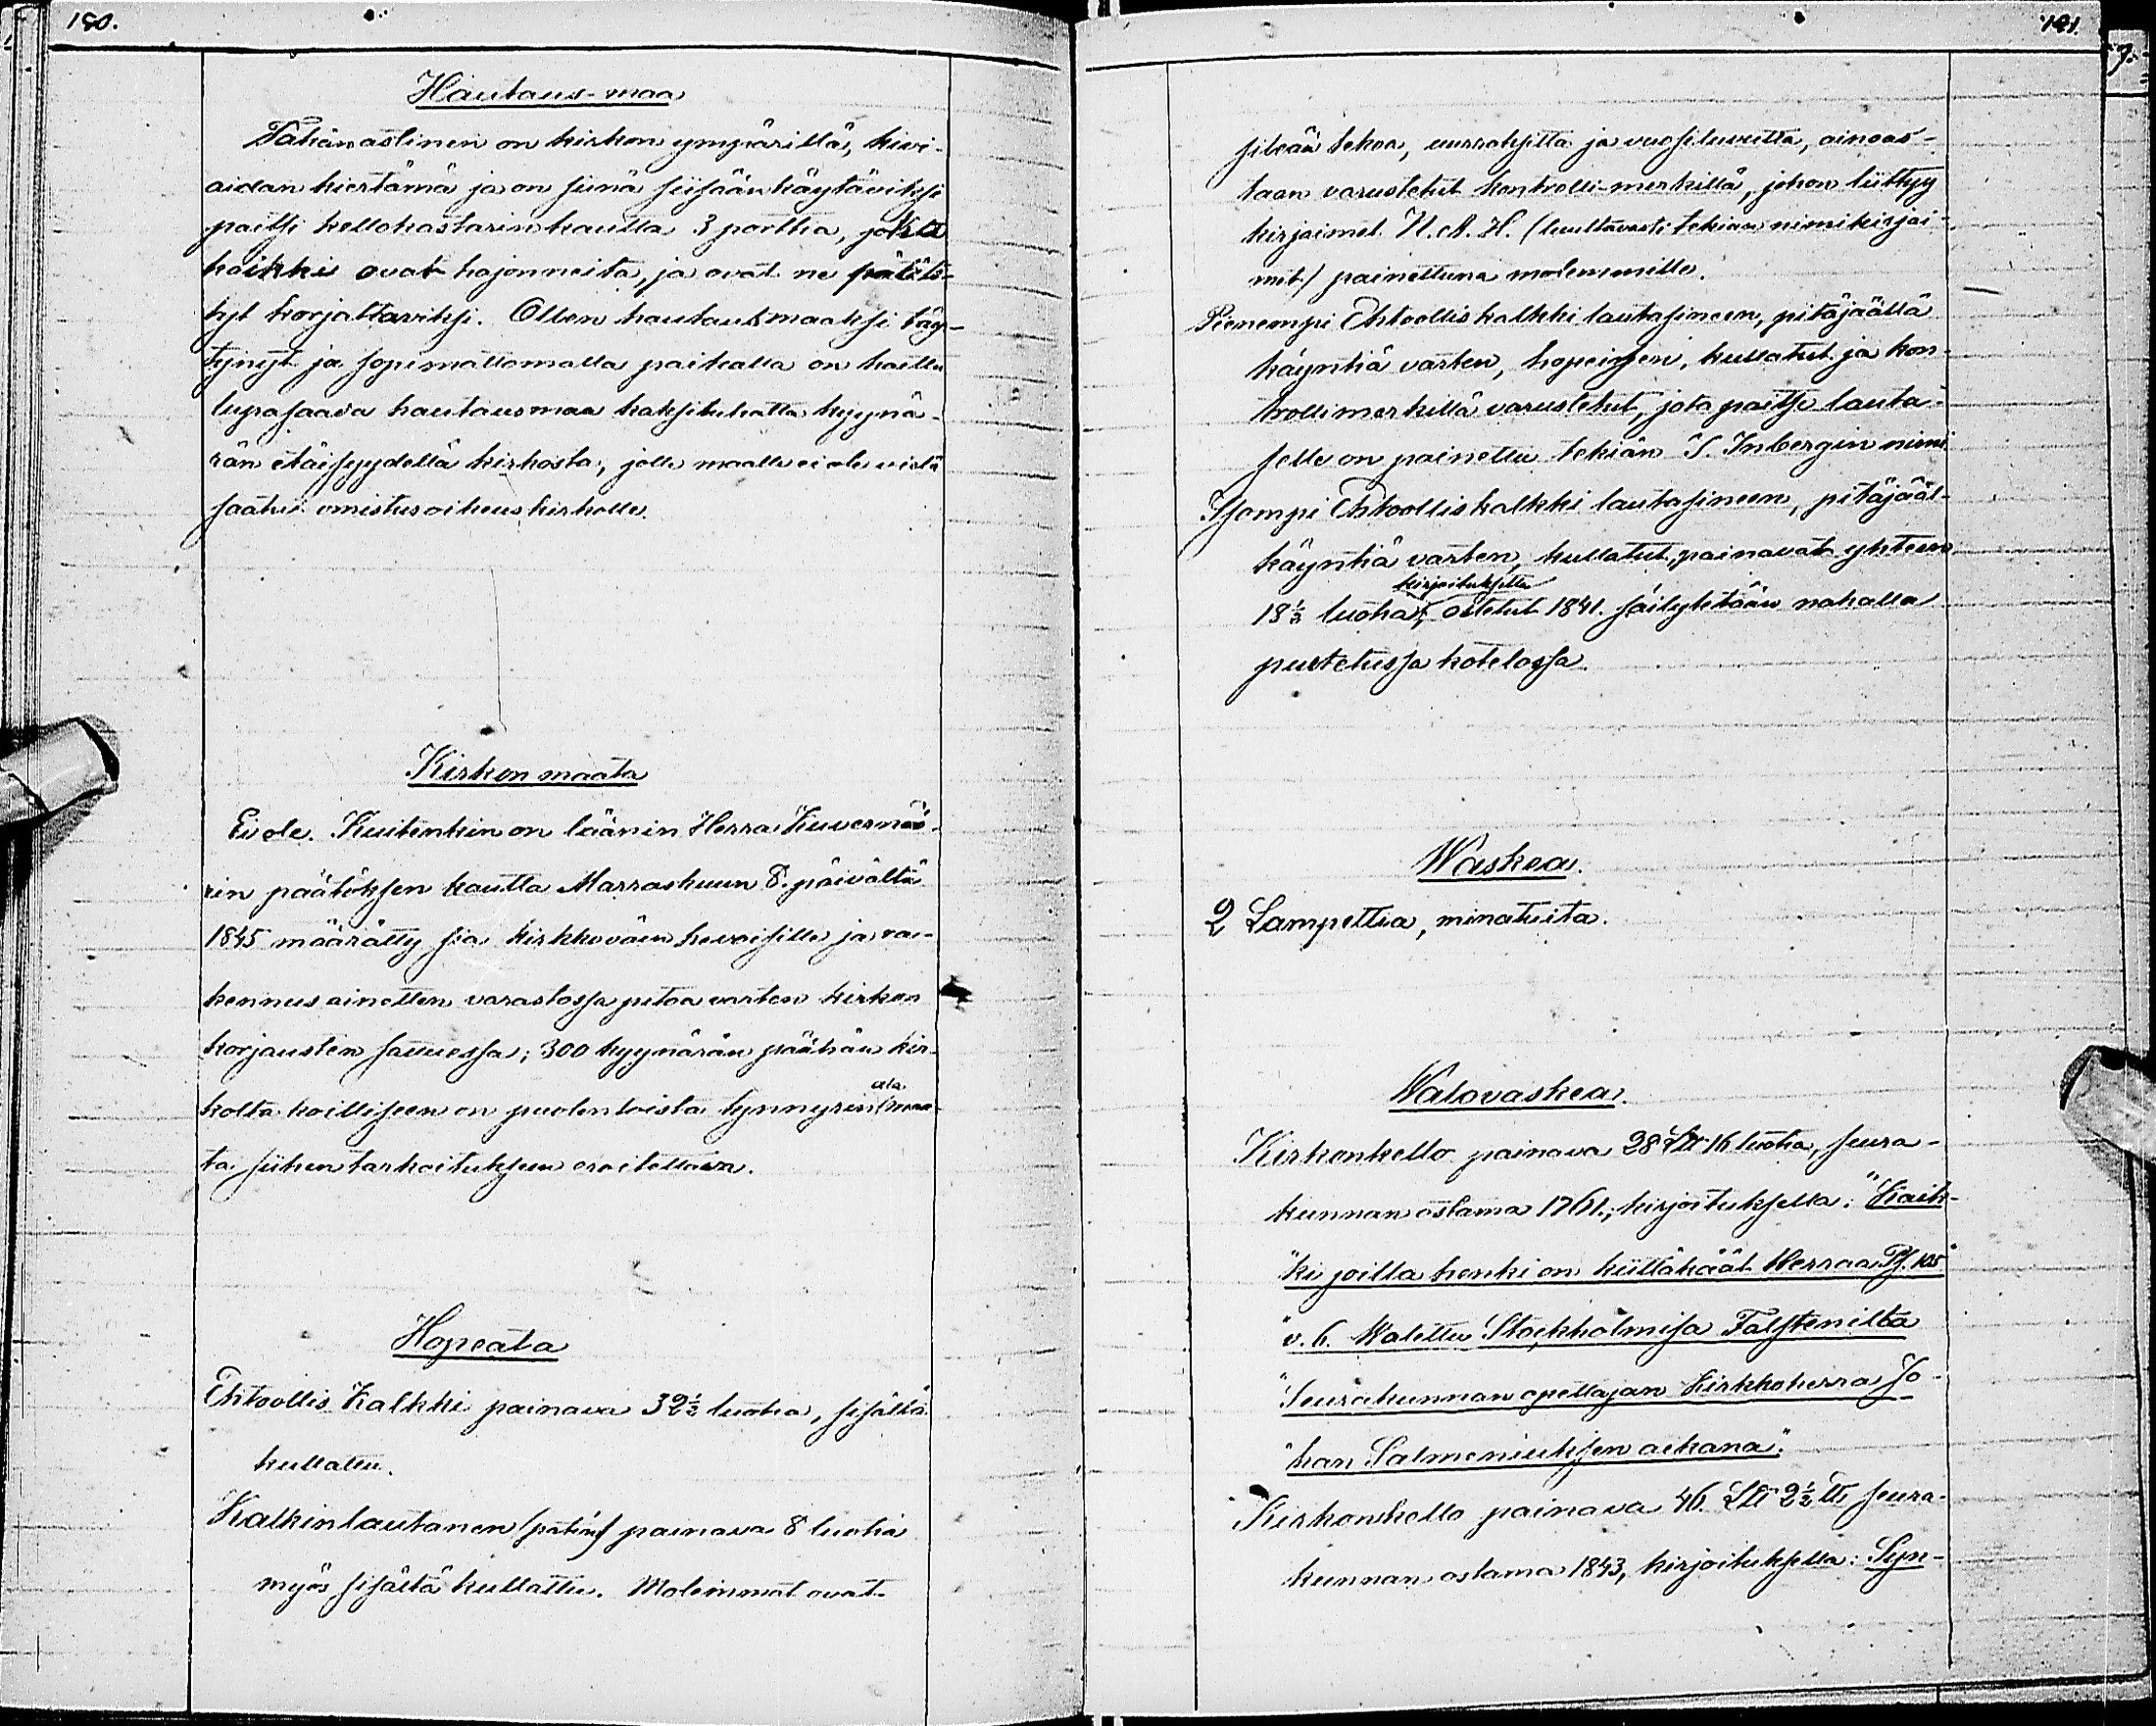 190.
Hautaus-maa
Tähän astinen on kirkon ympärillä, kivi-
aidan kiertämä ja on siinä sisään käytäviksi
paitsi kellokastarin kautta 3 porttia, jotka
kaikki ovat hajonneita, ja ovat ne päätet-
tyt korjattaviksi. Ollen hautausmaaksi täy-
tynyt ja sopimattomalla paikalla on haettu
lupa saada hautausmaa kaksituhatta kyynä-
rän etäisyydellä kirkosta, jolle maalle ei ole vielä
saatu omistusoikeus kirkolle.
Kirkon maata
Ei ole. Kuitenkin on läänin Herra Kuvernöö-
rin päätöksen kautta Marraskuun 8. päivältä
1845 määrätty sia kirkkoväen hevoisille ja ra-
kennus ainetten varastossa pitoa varten kirkon
korjausten sattuessa; 300 kyynärän päähän kir-
kolta koilliseen on puolentoista tynnyrin maa-
ala
ta siihen tarkoitukseen eroitettava.
Hopeata
Ehtoollis Kalkki painava 32½ luotia, sisältä
kullattu.
Kalkinlautanen (patin) painava 8 luotia
myös sisältä kullattu. Molemmat ovat
191.
sileää tekoa, uurroksitta ja vuosiluvutta, ainoas-
taan varustetut kontrolli-merkillä, johon liittyy
kirjaimet N. A. H. (luultavasti tekiän nimikirjai-
met) painettuna molemmille.
Pienempi Ehtoollis kalkki lautasineen, pitäjäällä
käyntiä varten, hopeiset, kullatut ja kon-
trollimerkillä varustetut, jota paitsi lauta-
selle on painettu tekiän S. Inbergin nimi
Isompi Ehtoollis kalkki lautasineen, pitäjääl-
käyntiä varten, kullatut, painavat yhteen
kirjoituksetta
18½ luotia; ostetut 1841. säilytetään nahalla
puetetussa kotelossa.
Waskea.
2 Lampettia, minatuita.
Walovaskea.
Kirkonkello painava 28 L℔ 16 luotia, seura-
kunnan ostama 1761.; kirjoituksella: "Kaik-
"ki joilla henki on kiittäkäät Herraa Ps. 105
"v. 6. Walettu Stockholmisa Falstenilta
"Seurakunnan opettajan Kirkkoherra Jo-
"han Salmeniuksen aikana".
Kirkonkello painava 46. L℔ 2½ ℔, seura-
kunnan ostama 1843, kirjoituksella: Syn-